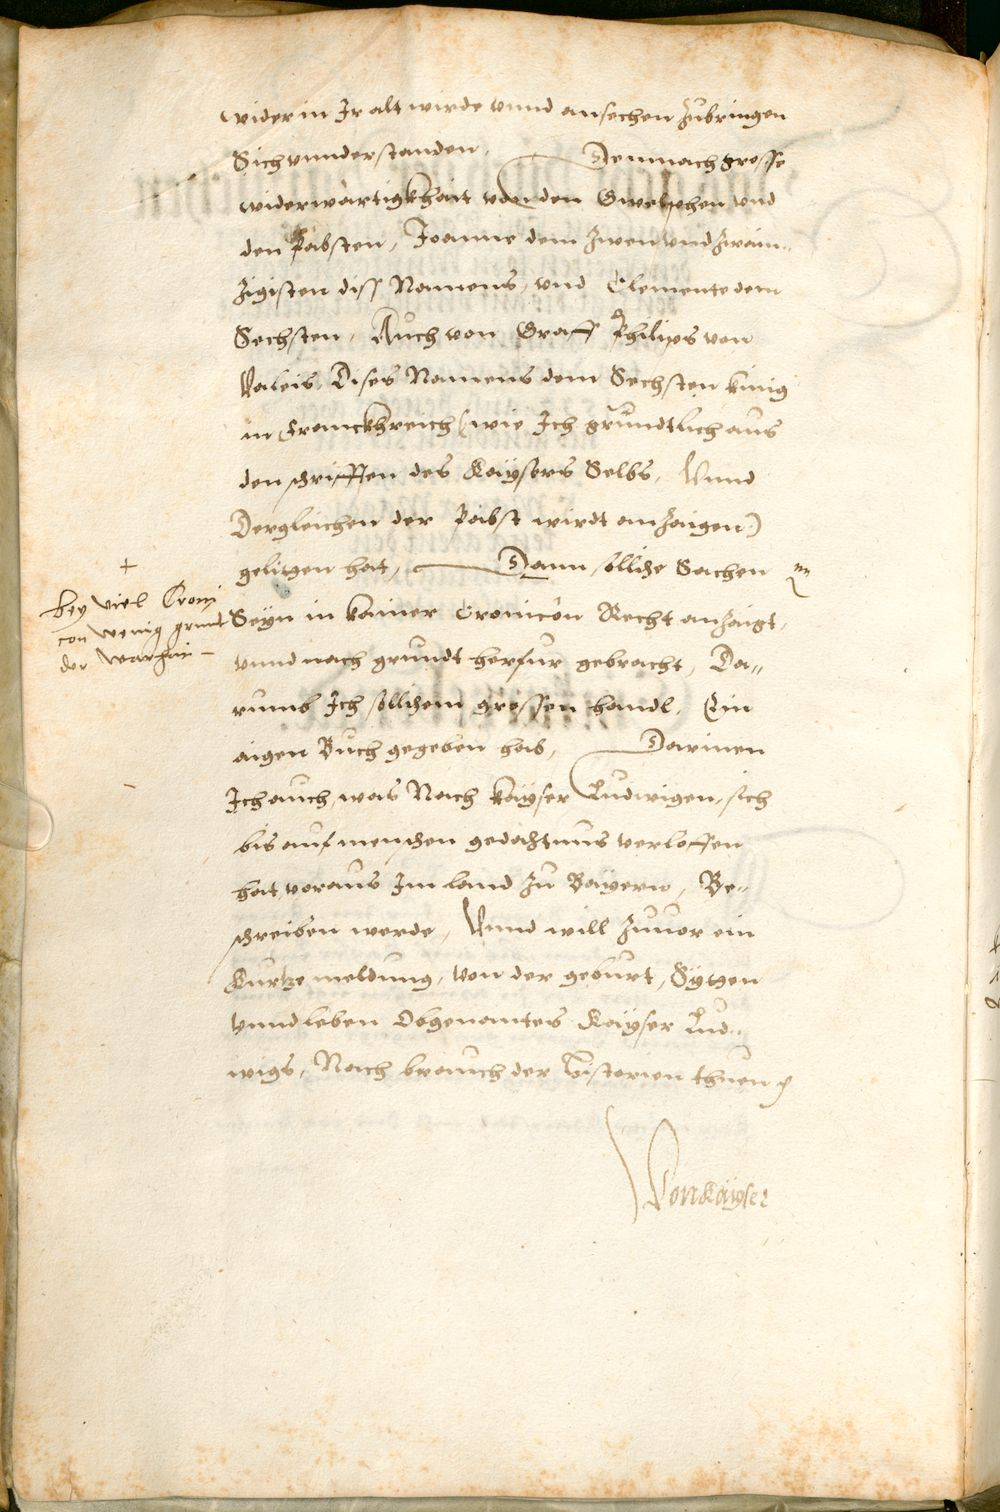 wider in Ir alt wirde vnnd ansechen zubringen
Sich vnnderstanden, Demnach grosse
widerwärtigkhait von den Gwelphen vnd
den Pabsten, Joanne dem zwen vnd zwain-
zigisten diss Namens, vnd Clemente dem
Sechsten, Auch von Graff Philips von
Valeis, Dises Namens dem Sechsten künig
in Franckhreich (wie Ich gründtlich aus
den schrifften des Kaysers Selbs, Vnnd
Dergleichen der Päbst wirdt anzaigen)
gelitgen hat, Dann solliche Sachen
+
bey viel Croni
con wenig grundt
der warhai-
Seyn in kainer Cronicon Recht anzaigt,
vnnd nach grundt herfür gebracht, Da-
rumb Ich sollichem grossen handl, Ein
aigen Buch gegeben hab, Darinnen
Ich auch, was Nach kayser Ludwigen, sich
bis auf menschen gedächtnus verloffen
hat, voraus Im land zu Bayern, Be-
schreiben werde, Vnnd will zuuor ein
Kurtze meldung, von der geburt, Sytgen
vnnd leben Obgenantes Kayser Lud-
wigs, Nach brauch der Historien thuen
Von Kayser